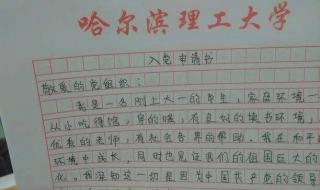 哈尔滨理工大学
入党申请书
敬爱的党组织：
我是一名刚上大一的学生，家庭环境一
从小吃得饱，穿的暖，有良好的读书环境，
优秀的老师，有社会各界的帮助。我在和平
环境中成长，同时也见证我们的祖国巨大的
化。我深知这一切是因为中国共产党的领导